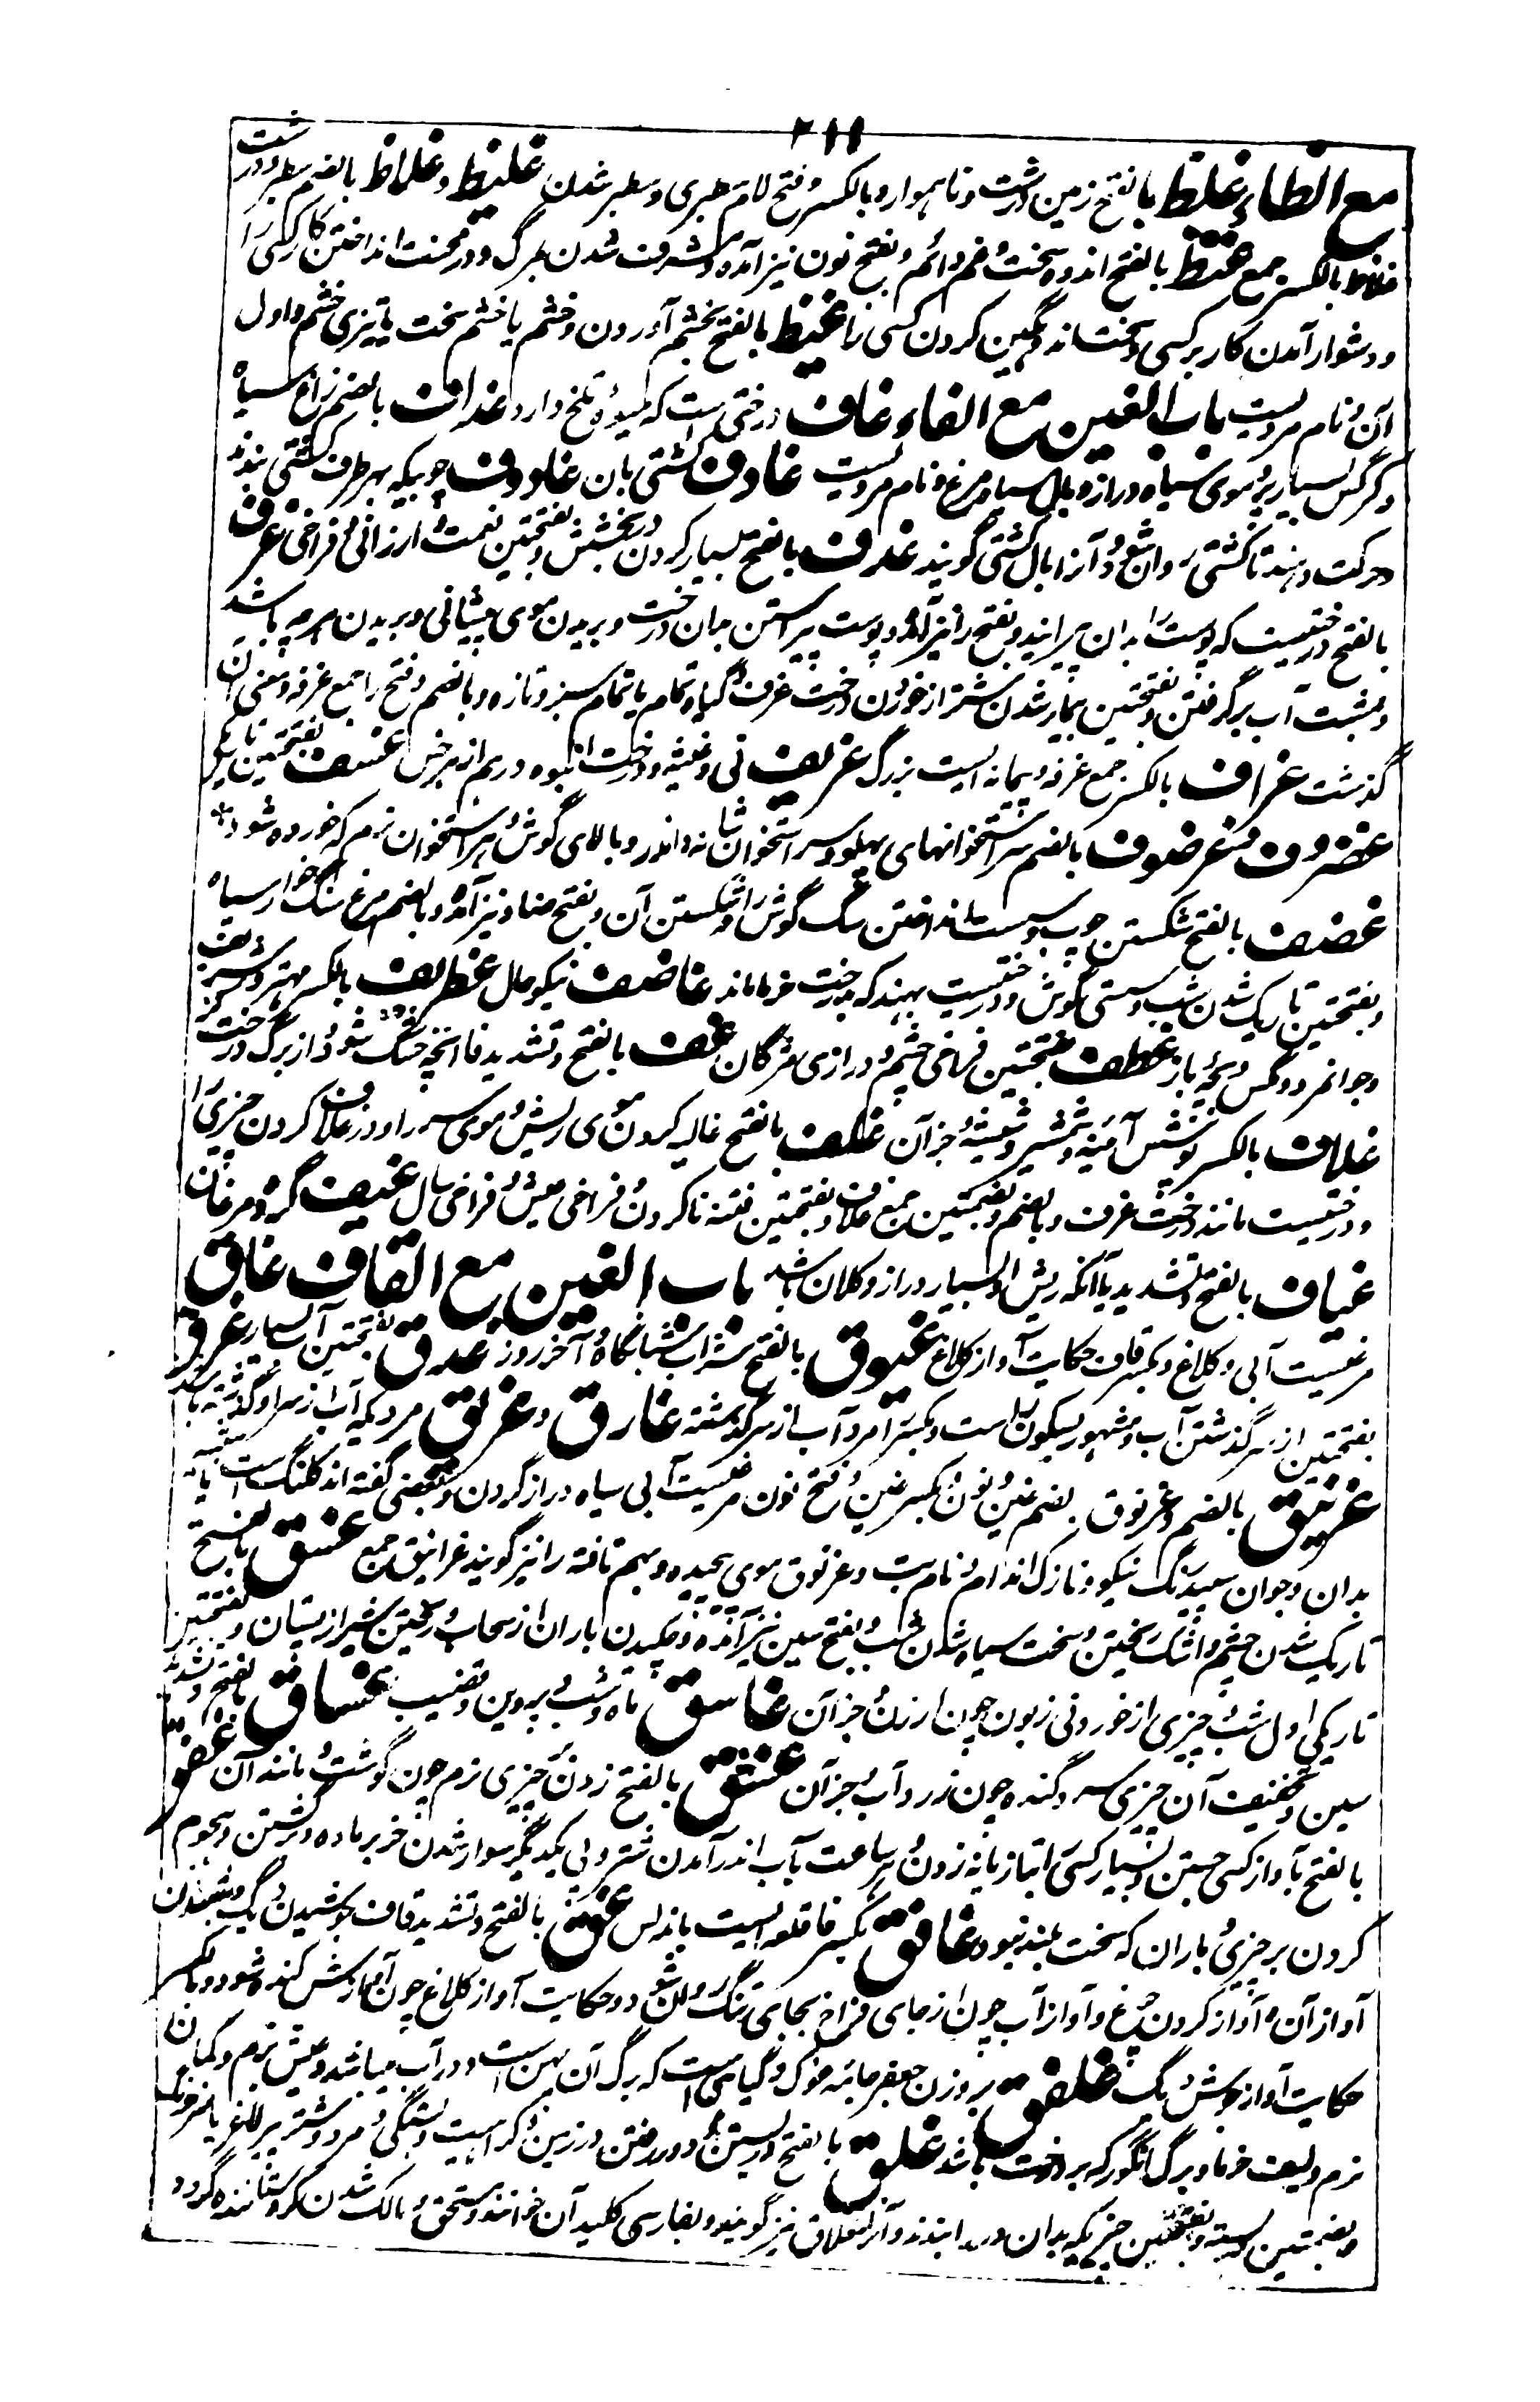 ۲۱۱
مع الظاء غلظ بالفتح زمین درشت و ناهموار و بالکسر و فتح لام سطبری و سطبر شدن غلیظ و غلاظ بالضم سطبر و درشت
غلاظ بالکسر جمع غنظ بالفتح اندوه سخت و غم دائم و بفتح نون نیز آمده و مشرف شدن بمرگ و در محنت انداختن کار کسی را
و دشوار آمدن کار بر کسی و سخت اندوهگین کردن کسی را غیظ بالفتح بخشم آوردن و خشم یا خشم سخت یا تیزی خشم و اول
آن و نام مردیست باب الغین مع الفاء غاف درختی ست که میوهٔ تلخ دارد غداف بالضم زاغ سیاه
و کرگس بسیار پر و موی سیاه دراز و بال سیاه مرغ و نام مردیست غادف کشتی بان غادوف چوبیکه بهر طرف کشتی بندند
و حرکت دهند تا کشتی روان شود و آنرا بال کشتی گویند غدف بالفتح بسیار کردن در بخشش و بفتحتین نعمت و ارزانی و فراخی غرف
بالفتح درختیست که پوست را بدان پیرایند و بفتح را نیز آمده و پوست پیراستن بدان درخت و بریدن موی پیشانی و بریدن هرچه باشد
و بمشت آب برگرفتن و بفتحتین بیمار شدن شتر از خوردن درخت غرف و گیاه ثمام یا ثمام سبز و تازه و بالضم و فتح را جمع غرفه و معنی آن
گذشت غراف بالکسر جمع غرفه و پیمانه ایست بزرگ غریف نی و غیشه و درخت انبوه درهم از هر جنس غسف بفتحتین تاریکی
غضروف و غرضوف بالضم سر استخوانهای پهلو و سر استخوان شانه و اندرو بالای گوش و هر استخوان نرم که خورده شود *
غضف بالفتح شکستن چوب و سست انداختن سگ گوش را و شکستن آن و بفتح ضاد نیز آمده و بالضم مرغ سنگ خوار سیاه
و بفتحتین تاریک شدن شب و سستی گوش و درختیست بهند که بدرخت خرما ماند غاضف نیکو حال غطریف بالکسر مهتر و شریف
و جوانمرد و مگس و بچهٔ باز غطف بفتحتین فراخی چشم و درازی مژگان غف بالفتح و تشدید فا آنچه خشک شود از برگ درخت
غلاف بالکسر پوشش آئینه و شمشیر و شیشه و جز آن غلف بالفتح غالیه کردن موی ریش و موی سر را و در غلاف کردن چیزی را
و درختیست مانند درخت غرف و بالضم و بضمتین جمع غلاف و بفتحتین ختنه ناکردن و فراخی عیش و فراخی سال غیف گروه مرغان
غیاف بالفتح و تشدید یا آنکه ریش او بسیار دراز و کلان باشد باب الغین مع القاف غاق
مرغیست آبی و کلاغ و بکسر قاف حکایت آواز کلاغ غبوق بالفتح شراب شبانگاه و آخر روز غدق بفتحتین آب بسیار غرق
بفتحتین از سر گذشتن آب و مشهور بسکون راست و بکسر را مرد آب از سر گذشته غارق و غریق مردیکه آب از سر او گذشته باشد
غرنیق بالضم و غرنوق بضم غین و نون و بکسر غین و فتح نون مرغیست آبی سیاه دراز گردن و بعضی گفته اند کلنگ است یا شبیه
بدان و جوان سپید رنگ نیکو و نازک اندام و نام مردیست و غرنوق موی پیچیده و بهم تافته را نیز گویند غرانیق جمع غسق بالفتح
تاریک شدن چشم و اشک ریختن و سخت سیاه شدن شب و بفتح سین نیز آمده و چکیدن باران از سحاب و ریختن شیر از پستان و بفتحتین
تاریکی اول شب و چیزی از خوردنی زبون چون ارزن و جز آن غاسق ماه و شب و پروین و قضیب غساق بالفتح و تشدید
سین و تخفیف آن چیزی سرد و گنده چون زرد آب و جز آن غشق بالفتح زدن بر چیزی نرم چون گوشت و مانند آن غفق
بالفتح بآواز کسی جستن و بسیار کسی را بتازیانه زدن و هر ساعت بآب اندر آمدن شتر و پی یکدیگر سوار شدن خر بر ماده و برگشتن و هجوم
کردن بر چیزی و باران که سخت بلند نبود غافق بکسر فا قلعه ایست باندلس غق بالفتح و تشدید قاف جوشیدن دیگ و شنیدن
آواز آن و آواز کردن چرغ و آواز آب چون از جای فراخ بجای تنگ روان شود و حکایت آواز کلاغ چون آوازش کنده شود و بالکسر
حکایت آواز جوش دیگ غلفق بروزن جعفر جامهٔ غوک و گیاهی است که برگ آن پهن است و در آب میباشد و عیش نرم و کمان
نرم و لیف خرما و برگ انگور که بر درخت باشد غلق بالفتح در بستن و دور رفتن در زمین و کراهیت و بستگی و مرد و شتر پیر لاغر یا سرخ رنگ
و بضمتین بسته و بفتحتین چیزیکه بدان در را بندند و آنرا مغلاق نیز گویند و بفارسی کلیدان خوانند و مستحق و مالک شدن گرو ستاننده گرو را